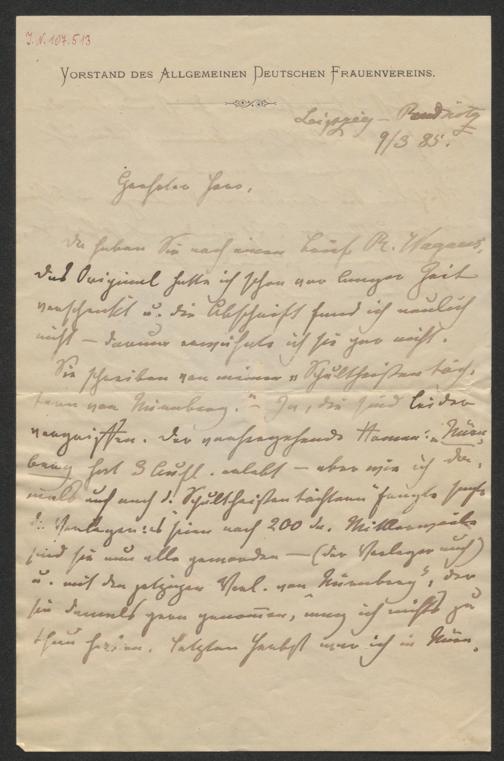 I.N. 107.513
VORSTAND DES ALLGEMEINEN DEUTSCHEN FRAUENVEREINS.
Leipzig – Reudnitz
9/3 85.
Geehrter Herr,
Da haben Sie noch einen Brief R. Wagners,
das Original hatte ich schon vor langer Zeit
verschenkt u. die Abschrift fand ich neulich
nicht – darum erwähnte ich sie gar nicht.
Sie schreiben von meinen „Schultheißentöch-
tern von Nürnberg." – Ja, die sind leider
vergriffen. Der vorhergehende Roman: „Nürn-
berg" hat 3 Aufl. erlebt – aber wie ich da-
mals auch nach d. „Schultheißentöchtern" fragte sagte
d. Verleger: es seien noch 200 da. Mittlerweile
sind sie nun alle geworden – (der Verleger auch)
u. mit dem jetzigen Verl. von „Nürnberg", der
sie damals gern genommen, mag ich nichts zu
thun haben. Letzten Herbst war ich in Nürn-